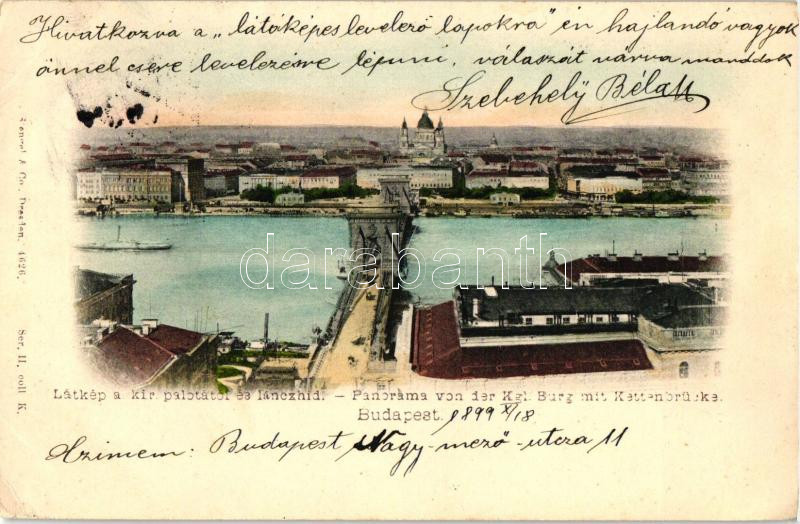 Hivatkozva a „látóképes levelező lapokra" én hajlandó vagyok
önnel csere levelezésre lépni, válaszát várva maraddok
Szebehely Béla
Stengel & Co., Dresden. 4626.
Ser. II. coll K.
darabanth
Látkép a kir. palotától és lánczhid. – Panoráma von der Kgl. Burg mit Kettenbrücke.
Budapest. 1899 XI/18
Czimem: Budapest Nagy-mező-utcza 11